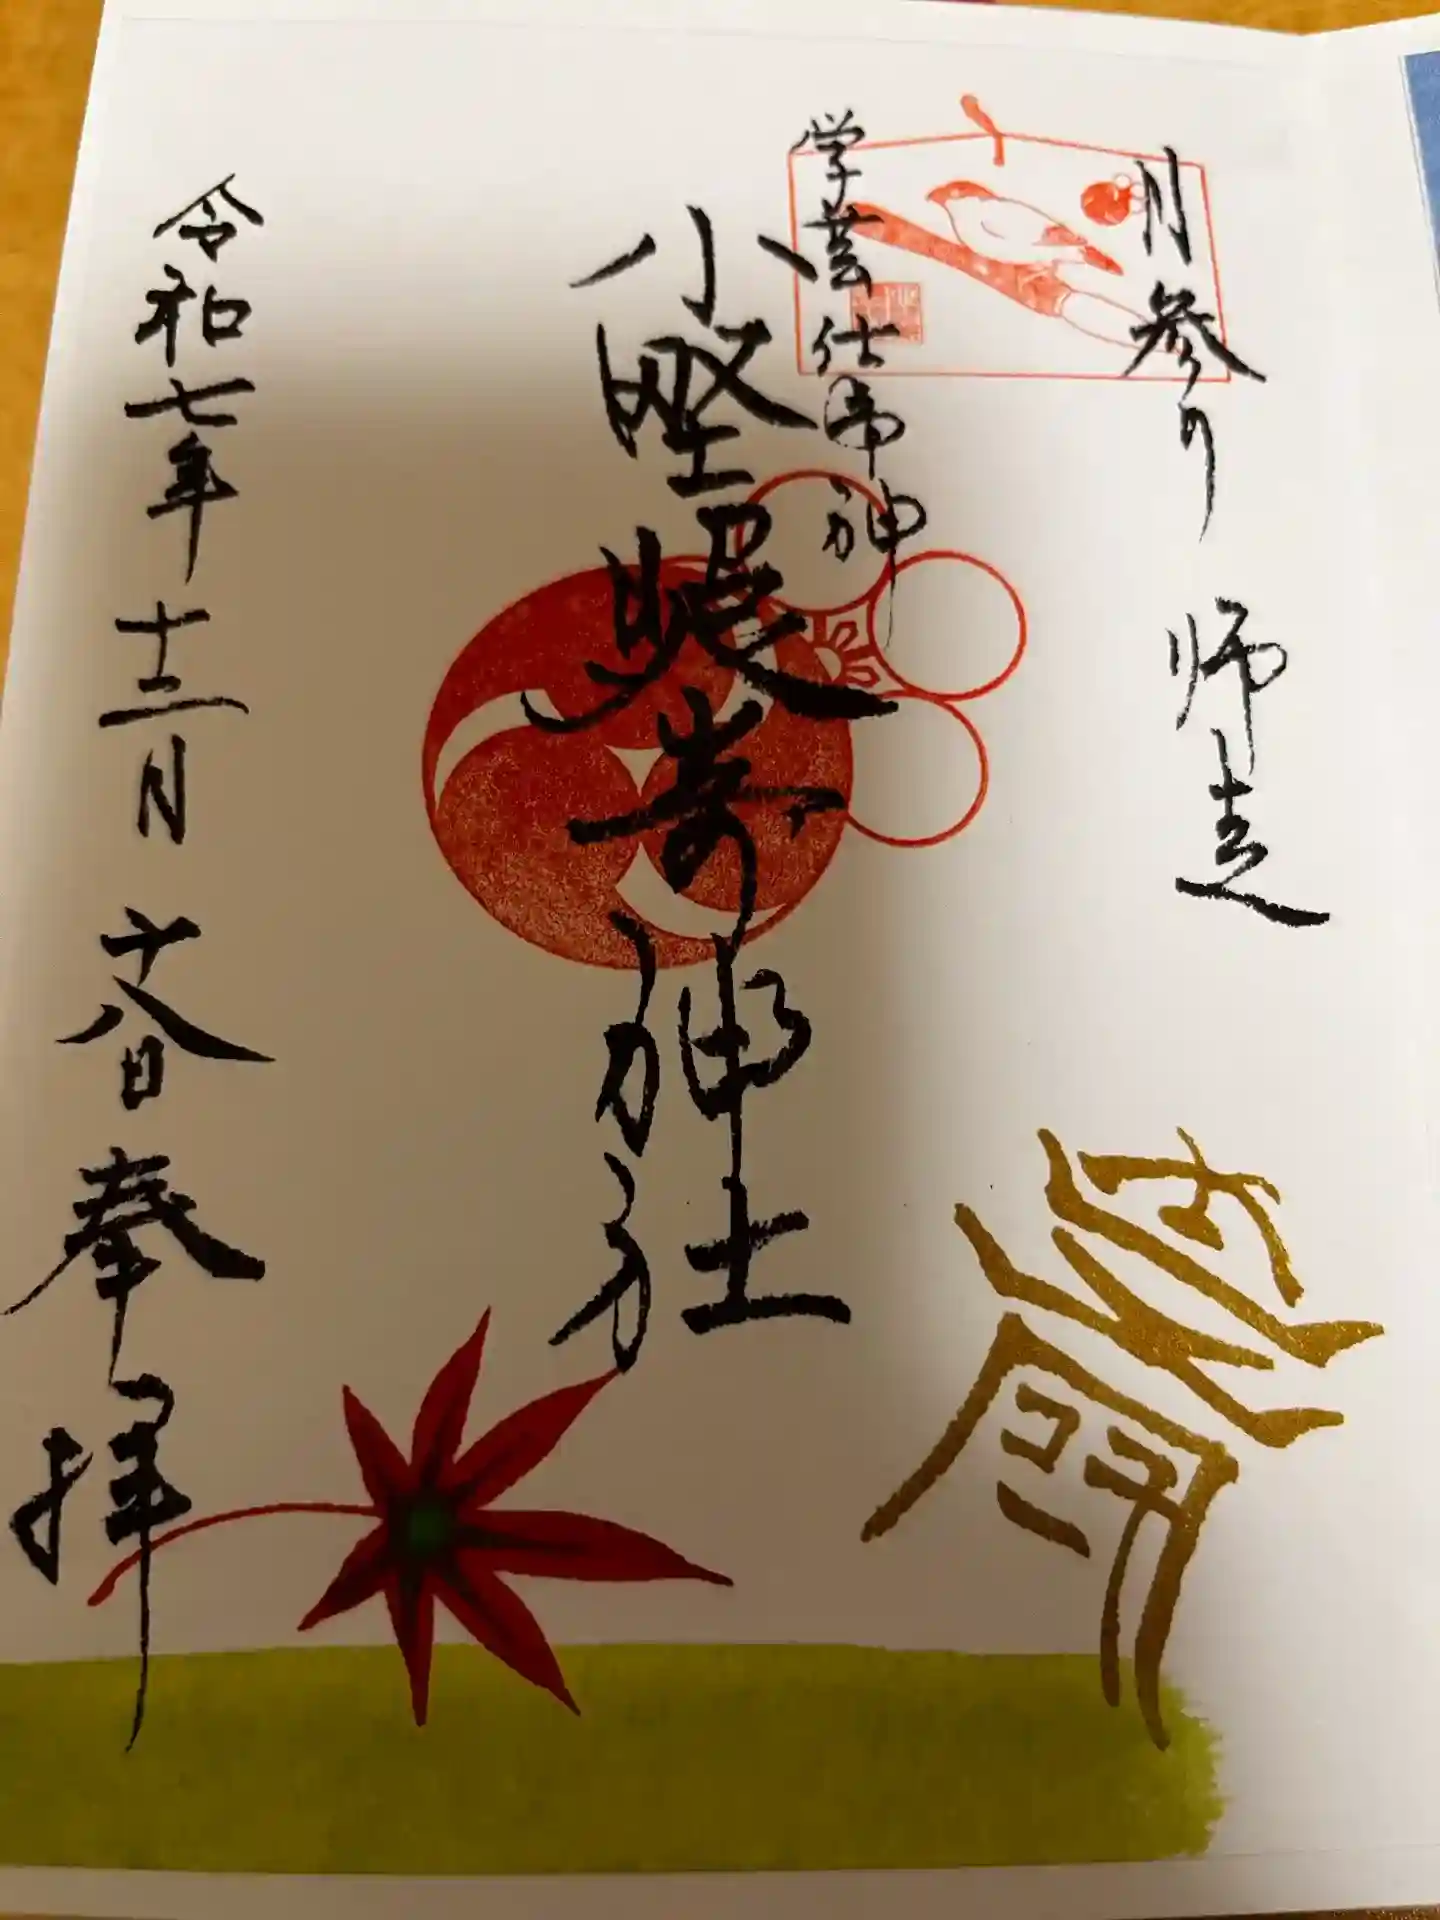 月参り 師走
学芸仕事神
小野照崎神社
令和七年 十二月 十八日 奉拝